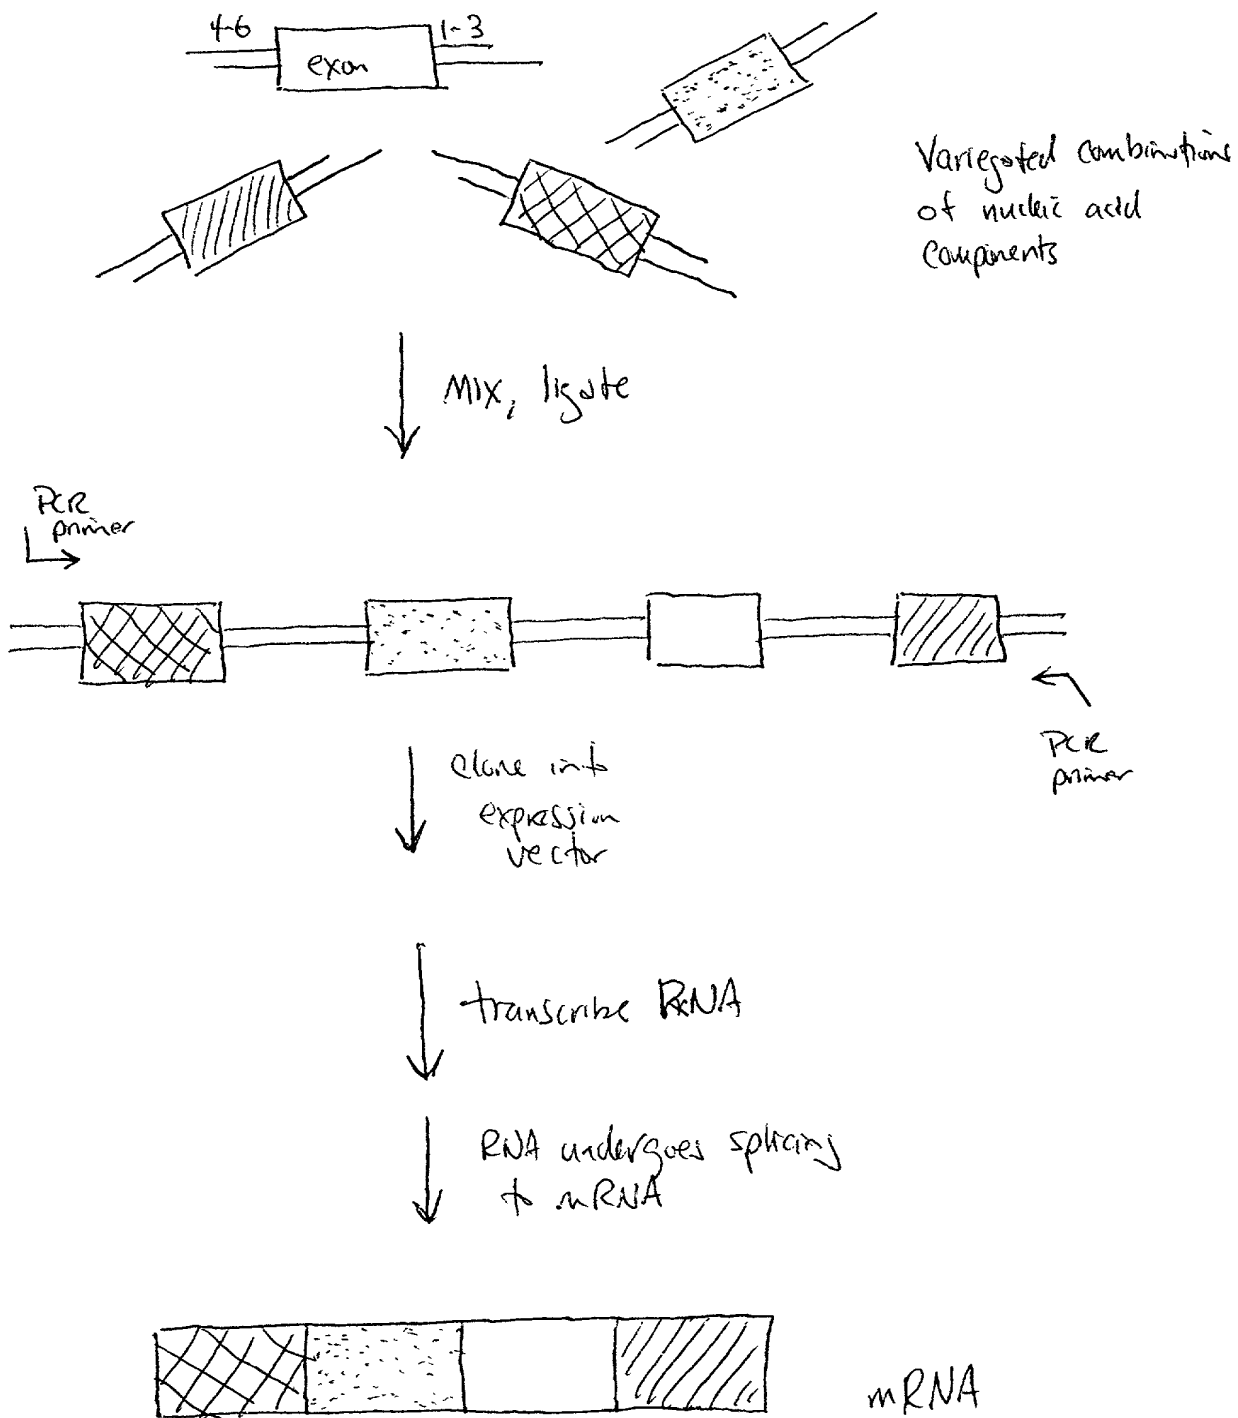 4-6
1-3
exon
Variegated combinations
of nucleic acid
components
MIX, ligate
PCR
primer
PCR
primer
clone into
expression
vector
transcribe RNA
RNA undergoes splicing
to mRNA
mRNA